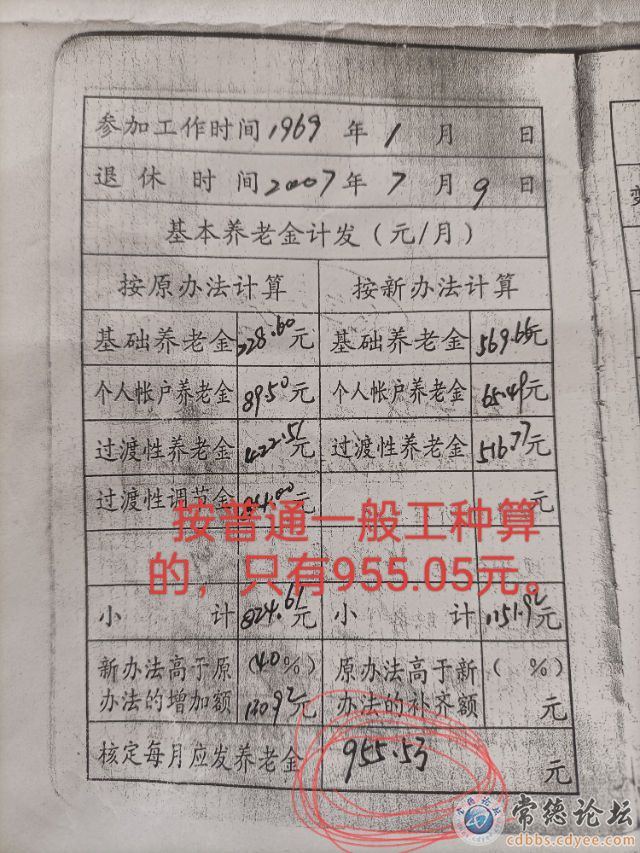 参加工作时间1969年1月 日
退休时间2007年7月9日
基本养老金计发(元/月)
按原办法计算 按新办法计算
基础养老金 228.60元 基础养老金 569.66元
个人帐户养老金 89.50元 个人帐户养老金 65.49元
过渡性养老金 422.51元 过渡性养老金 516.77元
过渡性调节金 84.00元 元
按普通一般工种算
的,只有955.05元。
小计 824.61元 小计 1151.92元
新办法高于原 (40%) 原办法高于新 ( %)
办法的增加额 130.92元 办法的补齐额 元
核定每月应发养老金 955.53 元
常德论坛
cdbbs.cdyee.com